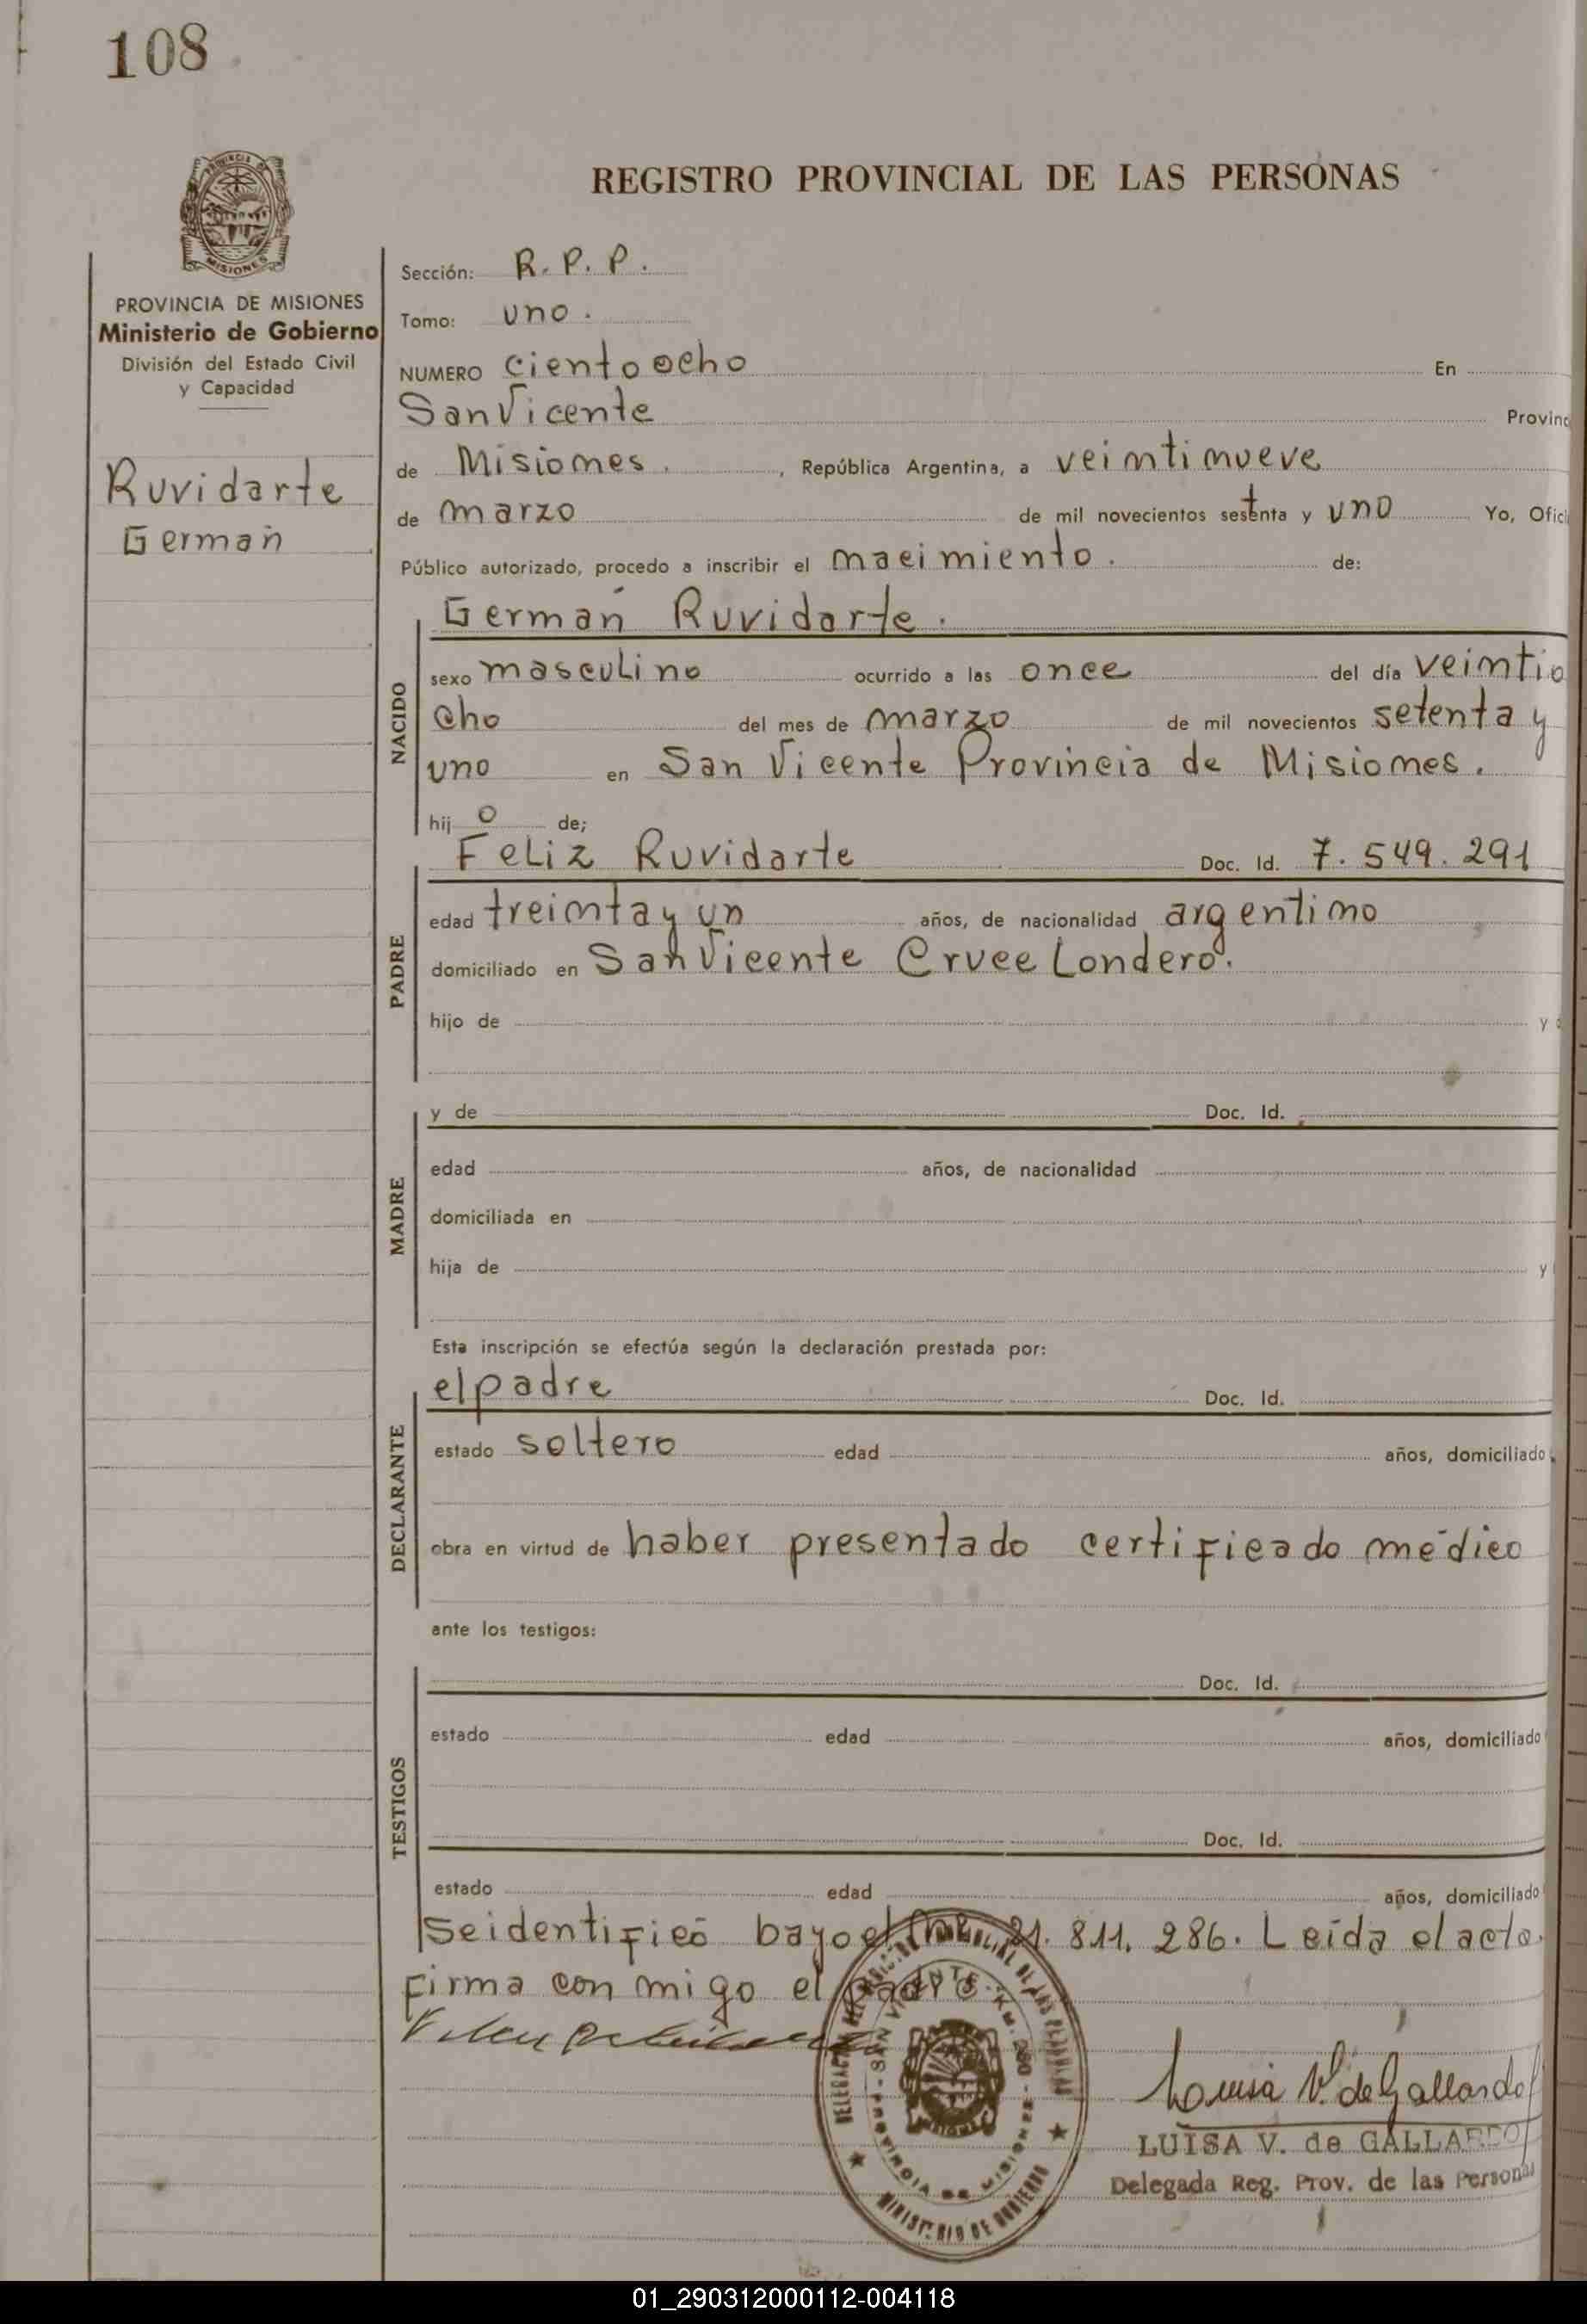 108
REGISTRO PROVINCIAL DE LAS PERSONAS
PROVINCIA DE MISIONES
Ministerio de Gobierno
División del Estado Civil
y Capacidad
Ruvidarte
Germán
Sección: R. P. P.
Tomo: uno.
NUMERO ciento ocho En
San Vicente Provinc
de Misiones. , República Argentina, a veintinueve
de marzo de mil novecientos sesenta y uno Yo, Ofici
Público autorizado, procedo a inscribir el nacimiento. de:
NACIDO
Germán Ruvidarte.
sexo masculino ocurrido a las once del día veintio
cho del mes de marzo de mil novecientos setenta y
uno en San Vicente Provincia de Misiones.
hij o de;
PADRE
Feliz Ruvidarte Doc. Id. 7.549.291
edad treinta y un años, de nacionalidad argentino
domiciliado en San Vicente Cruce Londero.
hijo de y
MADRE
y de Doc. Id.
edad años, de nacionalidad
domiciliada en
hija de y
Esta inscripción se efectúa según la declaración prestada por:
DECLARANTE
el padre Doc. Id.
estado soltero edad años, domiciliado
obra en virtud de haber presentado certificado médico
ante los testigos:
TESTIGOS
Doc. Id.
estado edad años, domiciliado
Doc. Id.
estado edad años, domiciliado
Se identificó bayo el 21.811.286. Leída el acta
firma con migo el padre
DELEGACION REGISTRO PROVINCIAL DE LAS PERSONAS
SAN VICENTE - KM. 260 - PROVINCIA DE MISIONES
MINISTERIO DE GOBIERNO
Luisa V. de Gallardo
LUISA V. de GALLARDO
Delegada Reg. Prov. de las Personas
01_290312000112-004118